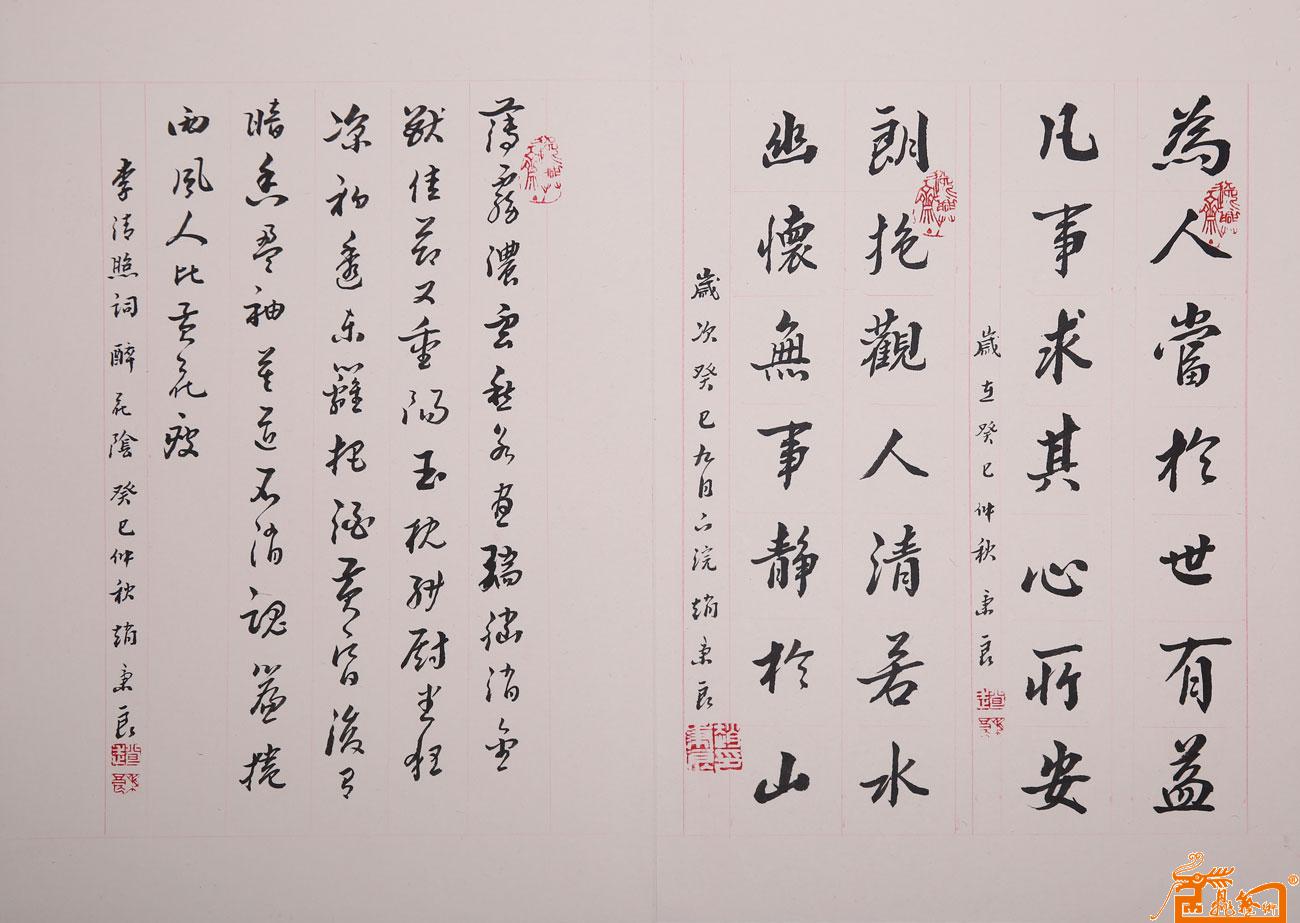 為人當於世有益
凡事求其心所安
歲在癸巳仲秋 秉良
朗抱觀人清若水
幽懷無事靜於山
歲次癸巳九月下浣趙秉良
薄霧濃雲愁永晝瑞腦消金
獸佳節又重陽玉枕紗廚半夜
涼初透東籬把酒黃昏後有
暗香盈袖莫道不消魂簾捲
西風人比黃花瘦
李清照詞醉花陰癸巳仲秋趙秉良